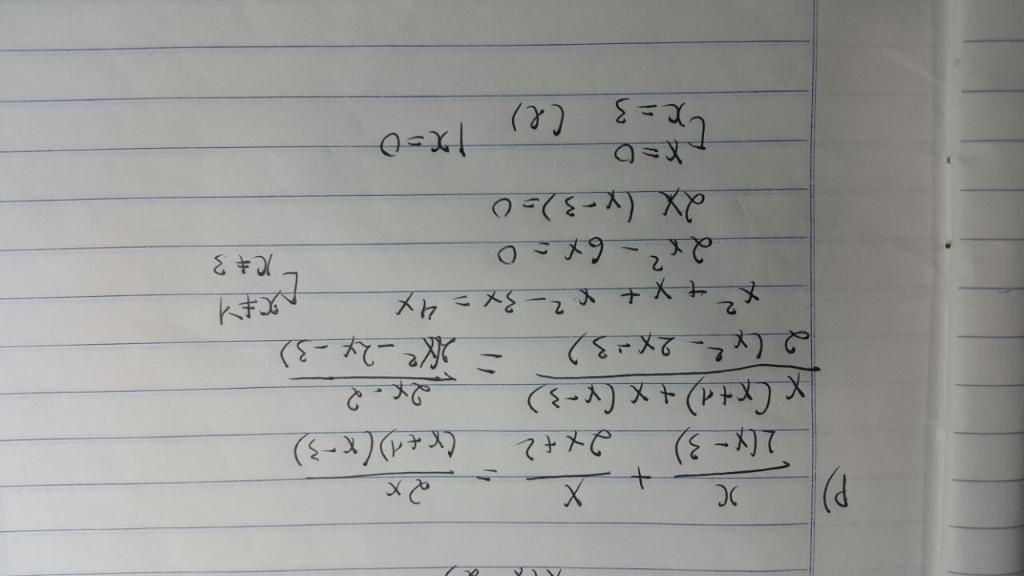 d) x/2(x-3) + x/2x+2 = 2x/(x+1)(x-3)
x(x+1)+x(x-3)/2(x²-2x-3) = 2x·2/2(x²-2x-3)
x² + x + x² - 3x = 4x [x≠-1
2x² - 6x = 0 x≠3
2x (x-3)=0
[x=0 |x=0
x=3 (l)